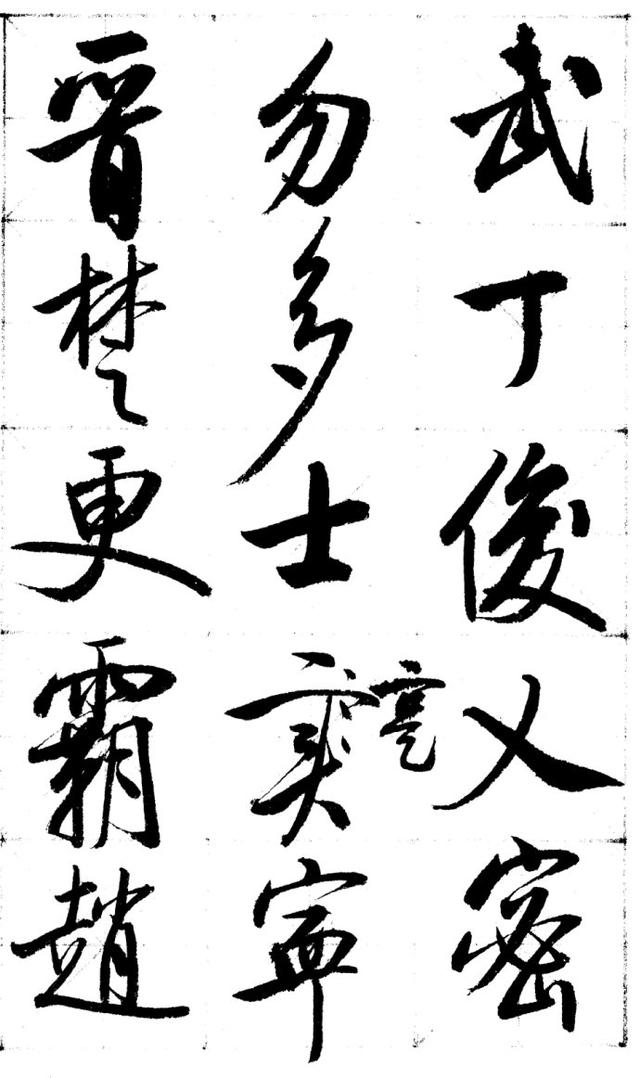 武丁俊乂密
勿多士寔寧
晉楚更霸趙